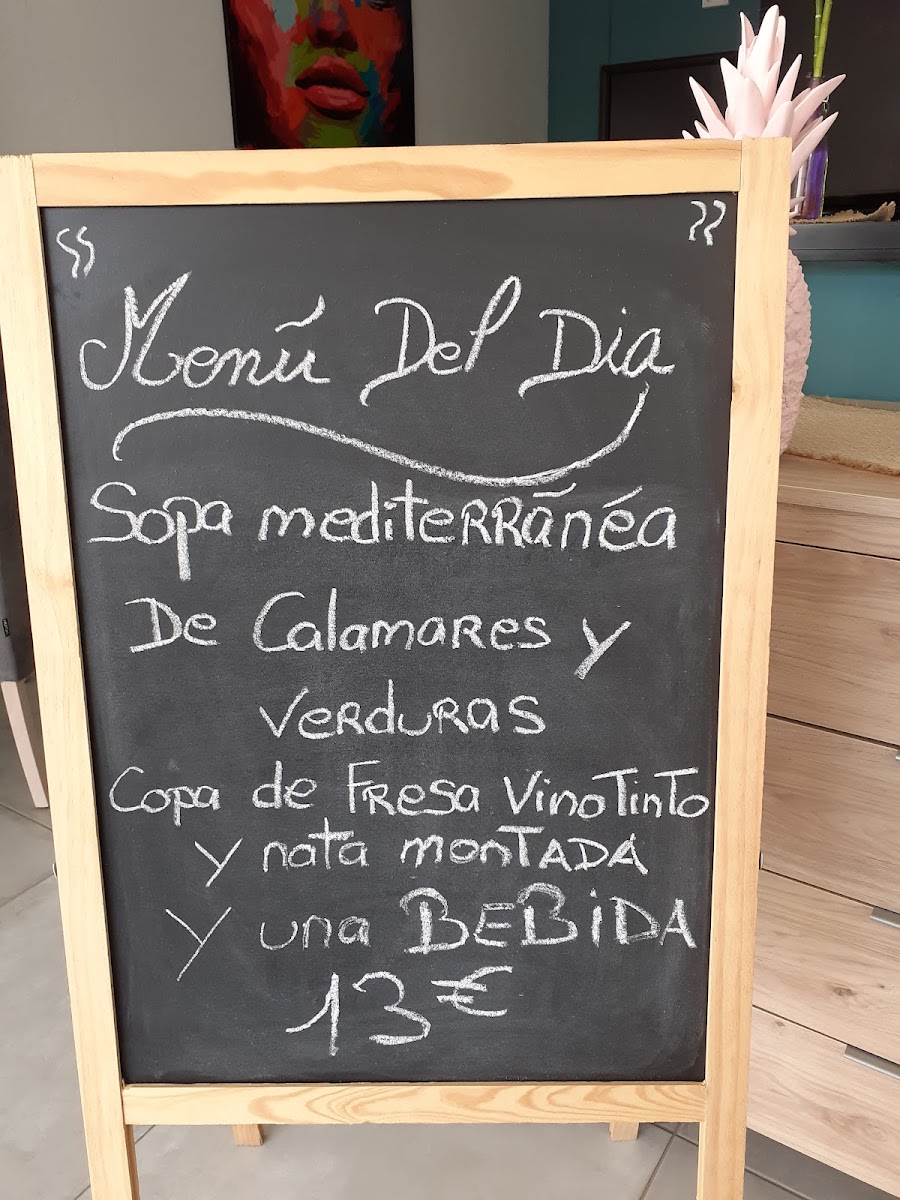 Menú Del Dia
Sopa mediterránéa
De Calamares y
verduras
Copa de Fresa Vino Tinto
y nata monTADA
y una BEBiDA
13€